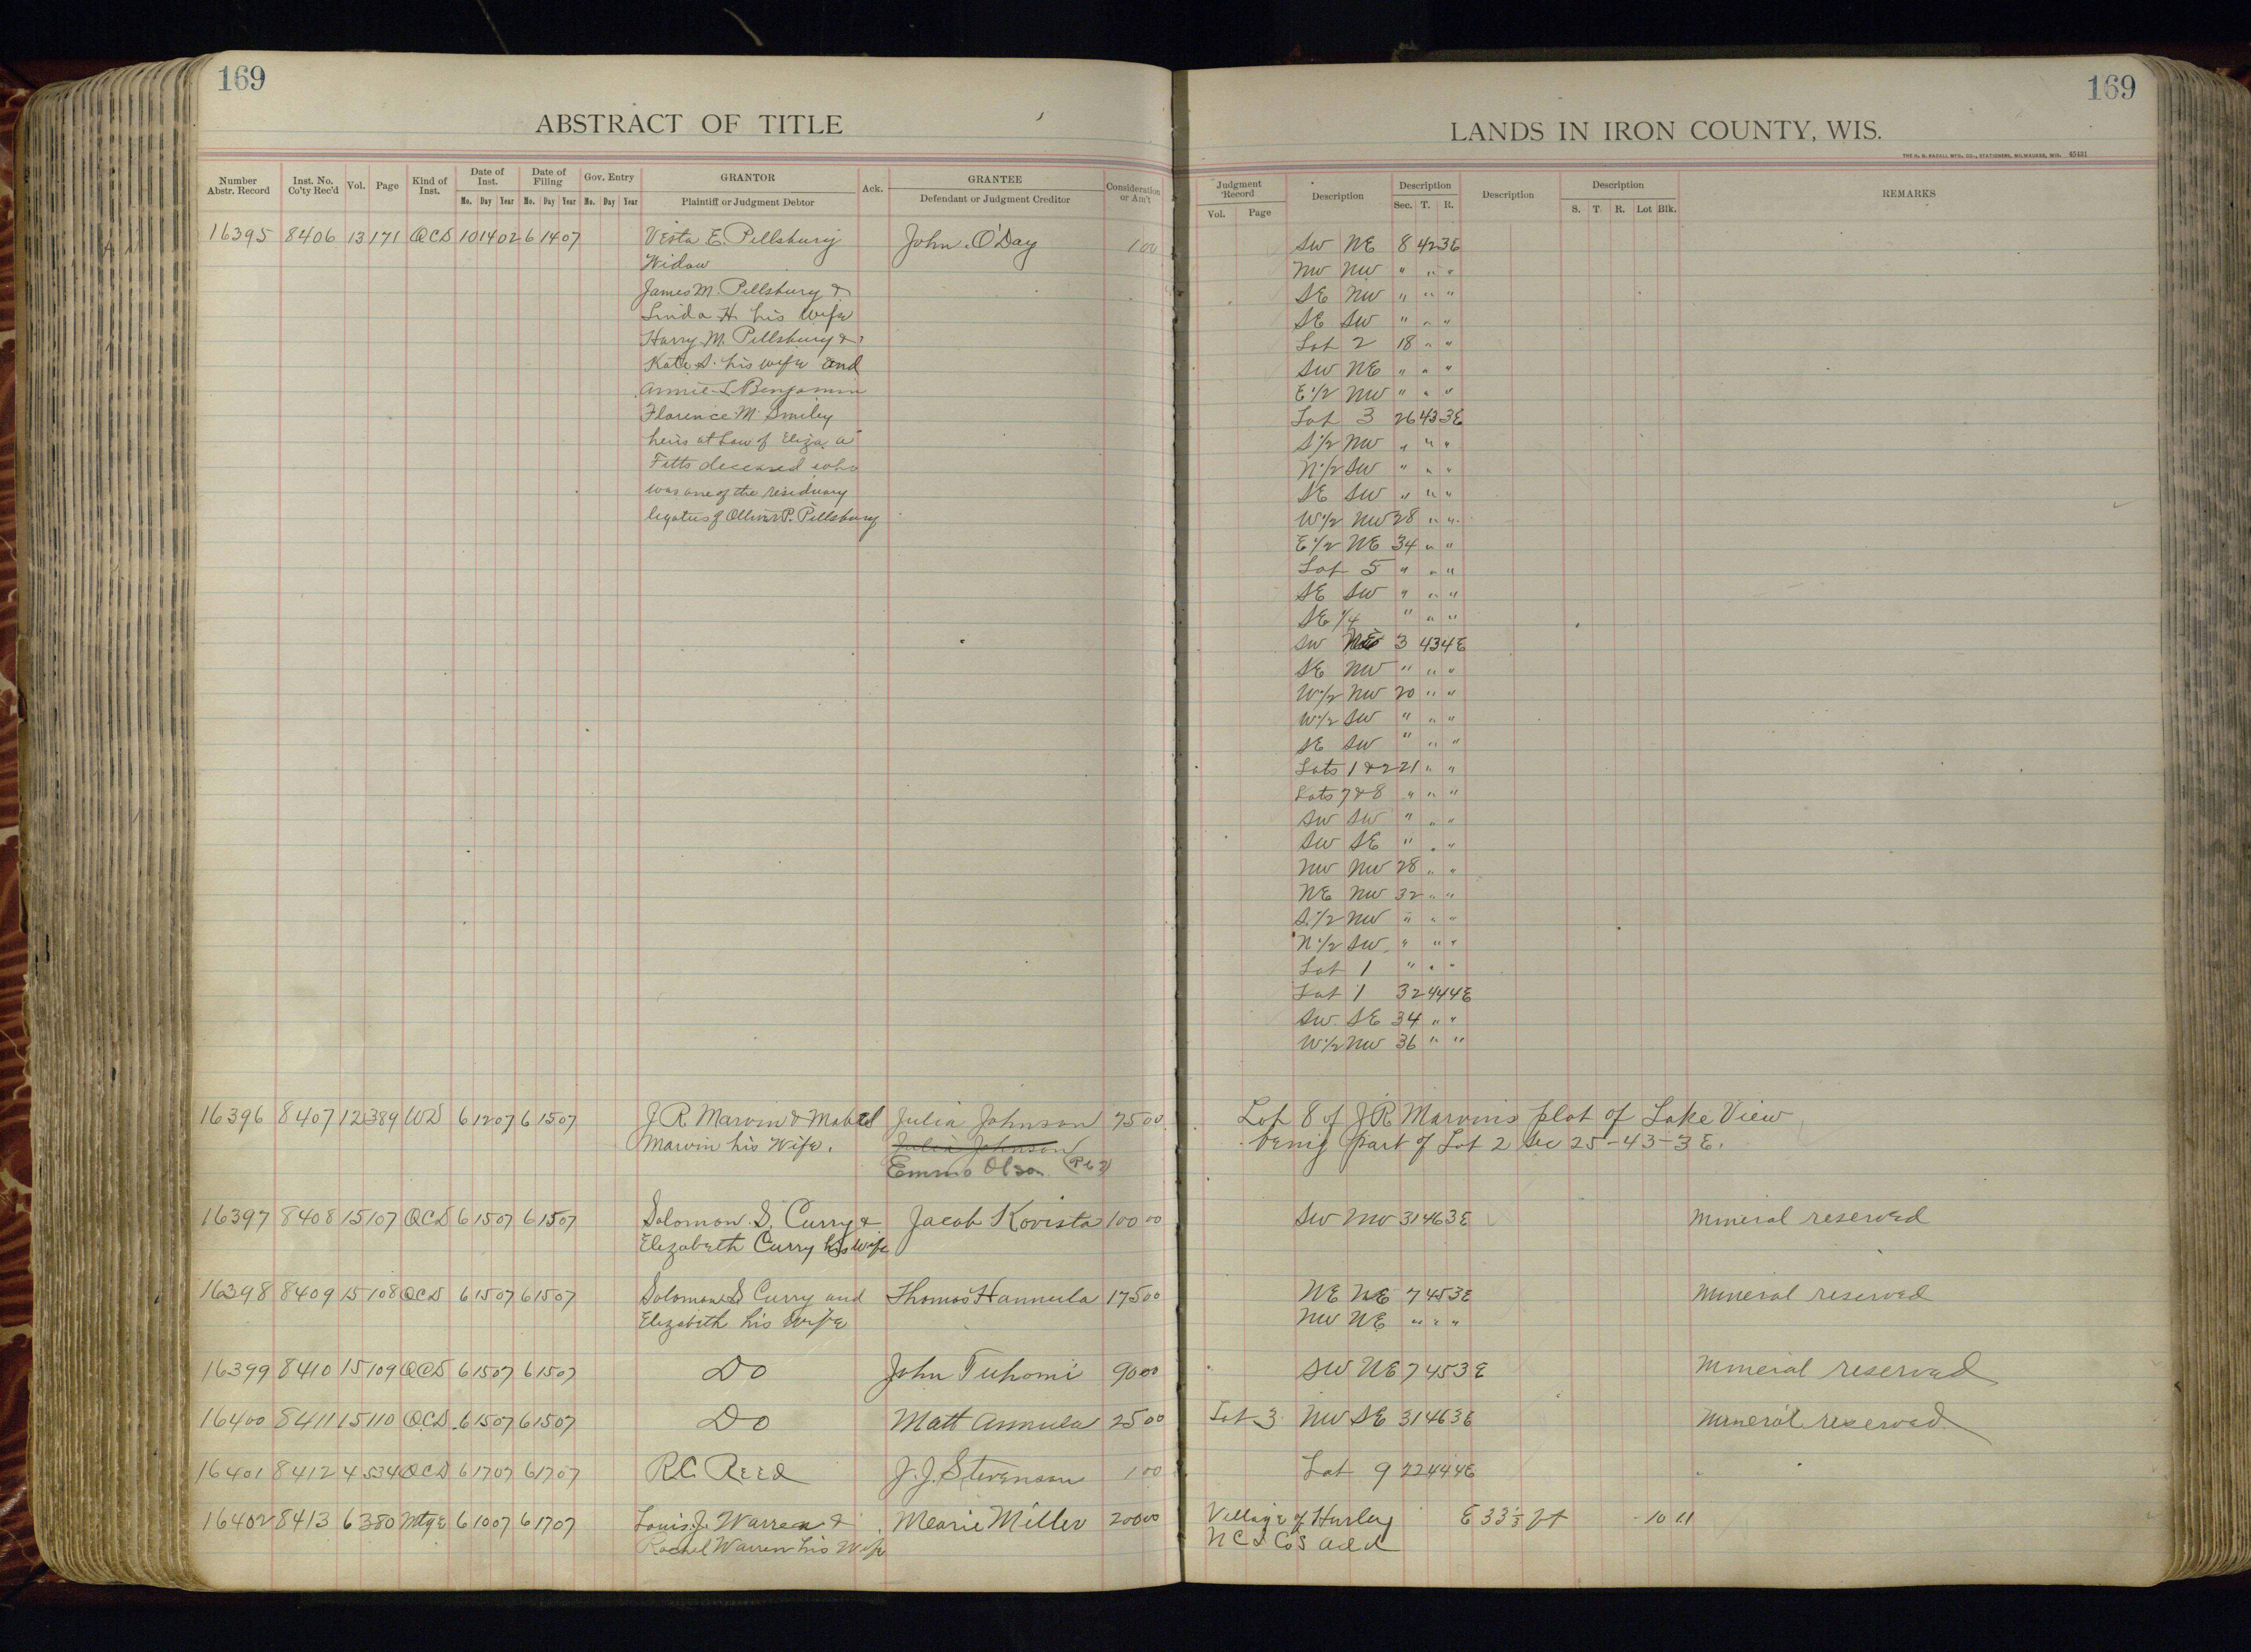 169
169
ABSTRACT OF TITLE
LANDS IN IRON COUNTY, WIS.
THE H. G. RAZALL MFG. CO., STATIONERS, MILWAUKEE, WIS. 45421
Number Abstr. Record | Inst. No. Co'ty Rec'd | Vol. | Page | Kind of Inst. | Date of Inst. Mo. Day Year | Date of Filing Mo. Day Year | Gov. Entry Mo. Day Year | GRANTOR Plaintiff or Judgment Debtor | Ack. | GRANTEE Defendant or Judgment Creditor | Consideration or Am't
Judgment Record Vol. Page | Description | Description Sec. T. R. | Description | Description S. T. R. Lot Blk. | REMARKS
16395 8406 13 171 QCD 10 14 02 6 14 07 Vesta E. Pillsbury John O'Day 1 00
Widow
James M. Pillsbury &
Linda H. his wife
Harry M. Pillsbury &
Kate S. his wife and
Annie L Benjamin
Florence M. Smiley
heirs at Law of Eliza A
Fitts deceased who
was one of the residuary
legatees of Olliver P. Pillsbury
SW NE 8 42 3E
NW NW " " "
SE NW " " "
SE SW " " "
Lot 2 18 " "
SW NE " " "
E 1/2 NW " " "
Lot 3 26 43 3E
S 1/2 NW " " "
N 1/2 SW " " "
SE SW " " "
W 1/2 NW 28 " "
E 1/2 NE 34 " "
Lot 5 " " "
SE SW " " "
SE 1/4 " " "
SW NE 3 43 4E
SE NW " " "
W 1/2 NW 20 " "
W 1/2 SW " " "
SE SW " " "
Lots 1 & 2 21 " "
Lots 7 & 8 " " "
SW SW " " "
SW SE " " "
NW NW 28 " "
NE NW 32 " "
S 1/2 NW " " "
N 1/2 SW " " "
Lot 1 " " "
Lot 1 32 44 4E
SW SE 34 " "
W 1/2 NW 36 " "
16396 8407 12 389 WD 6 12 07 6 15 07 J R Marvin & Mabel Julia Johnson 75 00 Lot 8 of J R Marvins plat of Lake View
Marvin his Wife. Julia Johnson being part of Lot 2 Sec 25-43-3E.
Emma Olson
16397 8408 15 107 QCD 6 15 07 6 15 07 Solomon S. Curry & Jacob Kovista 100 00 SW NW 31 46 3E Mineral reserved
Elizabeth Curry his wife
16398 8409 15 108 QCD 6 15 07 6 15 07 Solomon S Curry and Thomas Hannula 175 00 NE NE 7 45 3E Mineral reserved
Elizabeth his wife NW NE " " "
16399 8410 15 109 QCD 6 15 07 6 15 07 Do John Tuhomi 90 00 SW NE 7 45 3E Mineral reserved
16400 8411 15 110 QCD 6 15 07 6 15 07 Do Matt Annula 25 00 Lot 3 NW SE 31 46 3E Mineral reserved
16401 8412 4 534 QCD 6 17 07 6 17 07 R.C. Reed J. J. Stevenson 1 00 Lot 9 22 44 4E
16402 8413 6 380 Mtge 6 10 07 6 17 07 Louis J. Warren & Mearie Miller 200 00 Village of Hurley E 33 1/3 ft 10 11
Rachel Warren his Wife N C L Co's Add